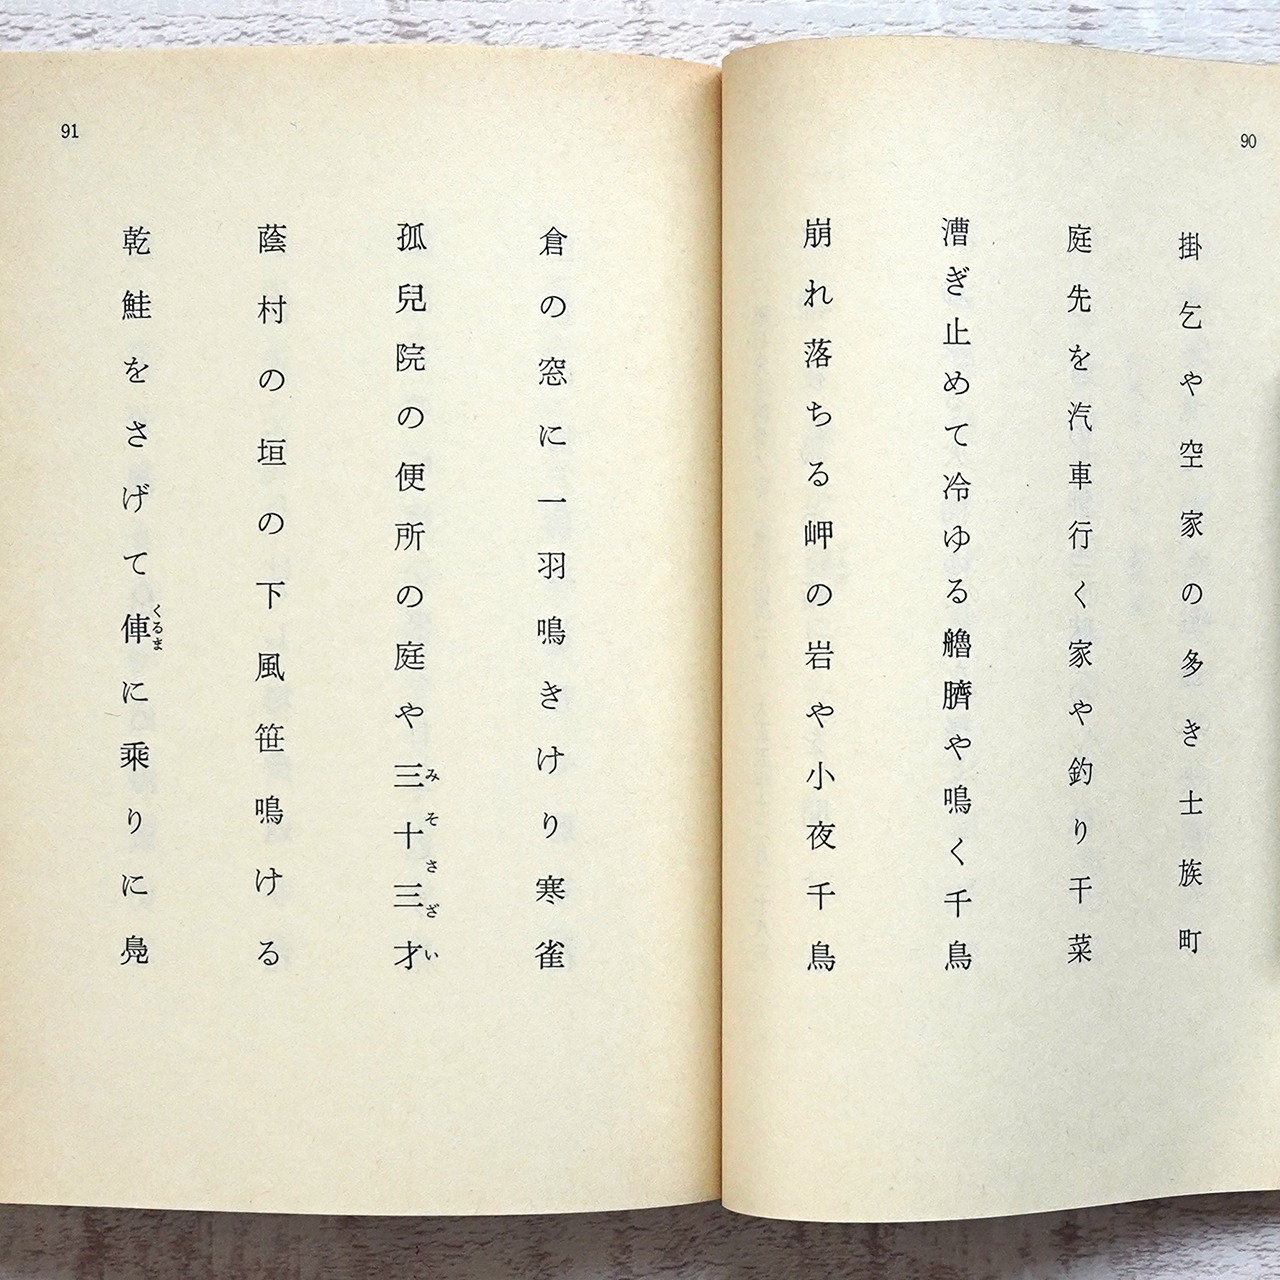 90
掛乞や空家の多き士族町
庭先を汽車行く家や釣り干菜
漕ぎ止めて冷ゆる艪臍や鳴く千鳥
崩れ落ちる岬の岩や小夜千鳥
91
倉の窓に一羽鳴きけり寒雀
孤兒院の便所の庭や三十三才
みそさざい
蔭村の垣の下風笹鳴ける
乾鮭をさげて俥に乗りに鳧
くるま